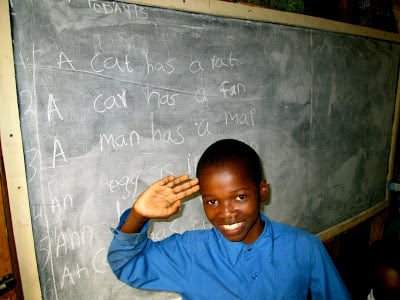 TODAY IS
1. A cat has a rat.
2. A car has a fan
3. A man has a map
4. An egg is
5. Ann
6. An